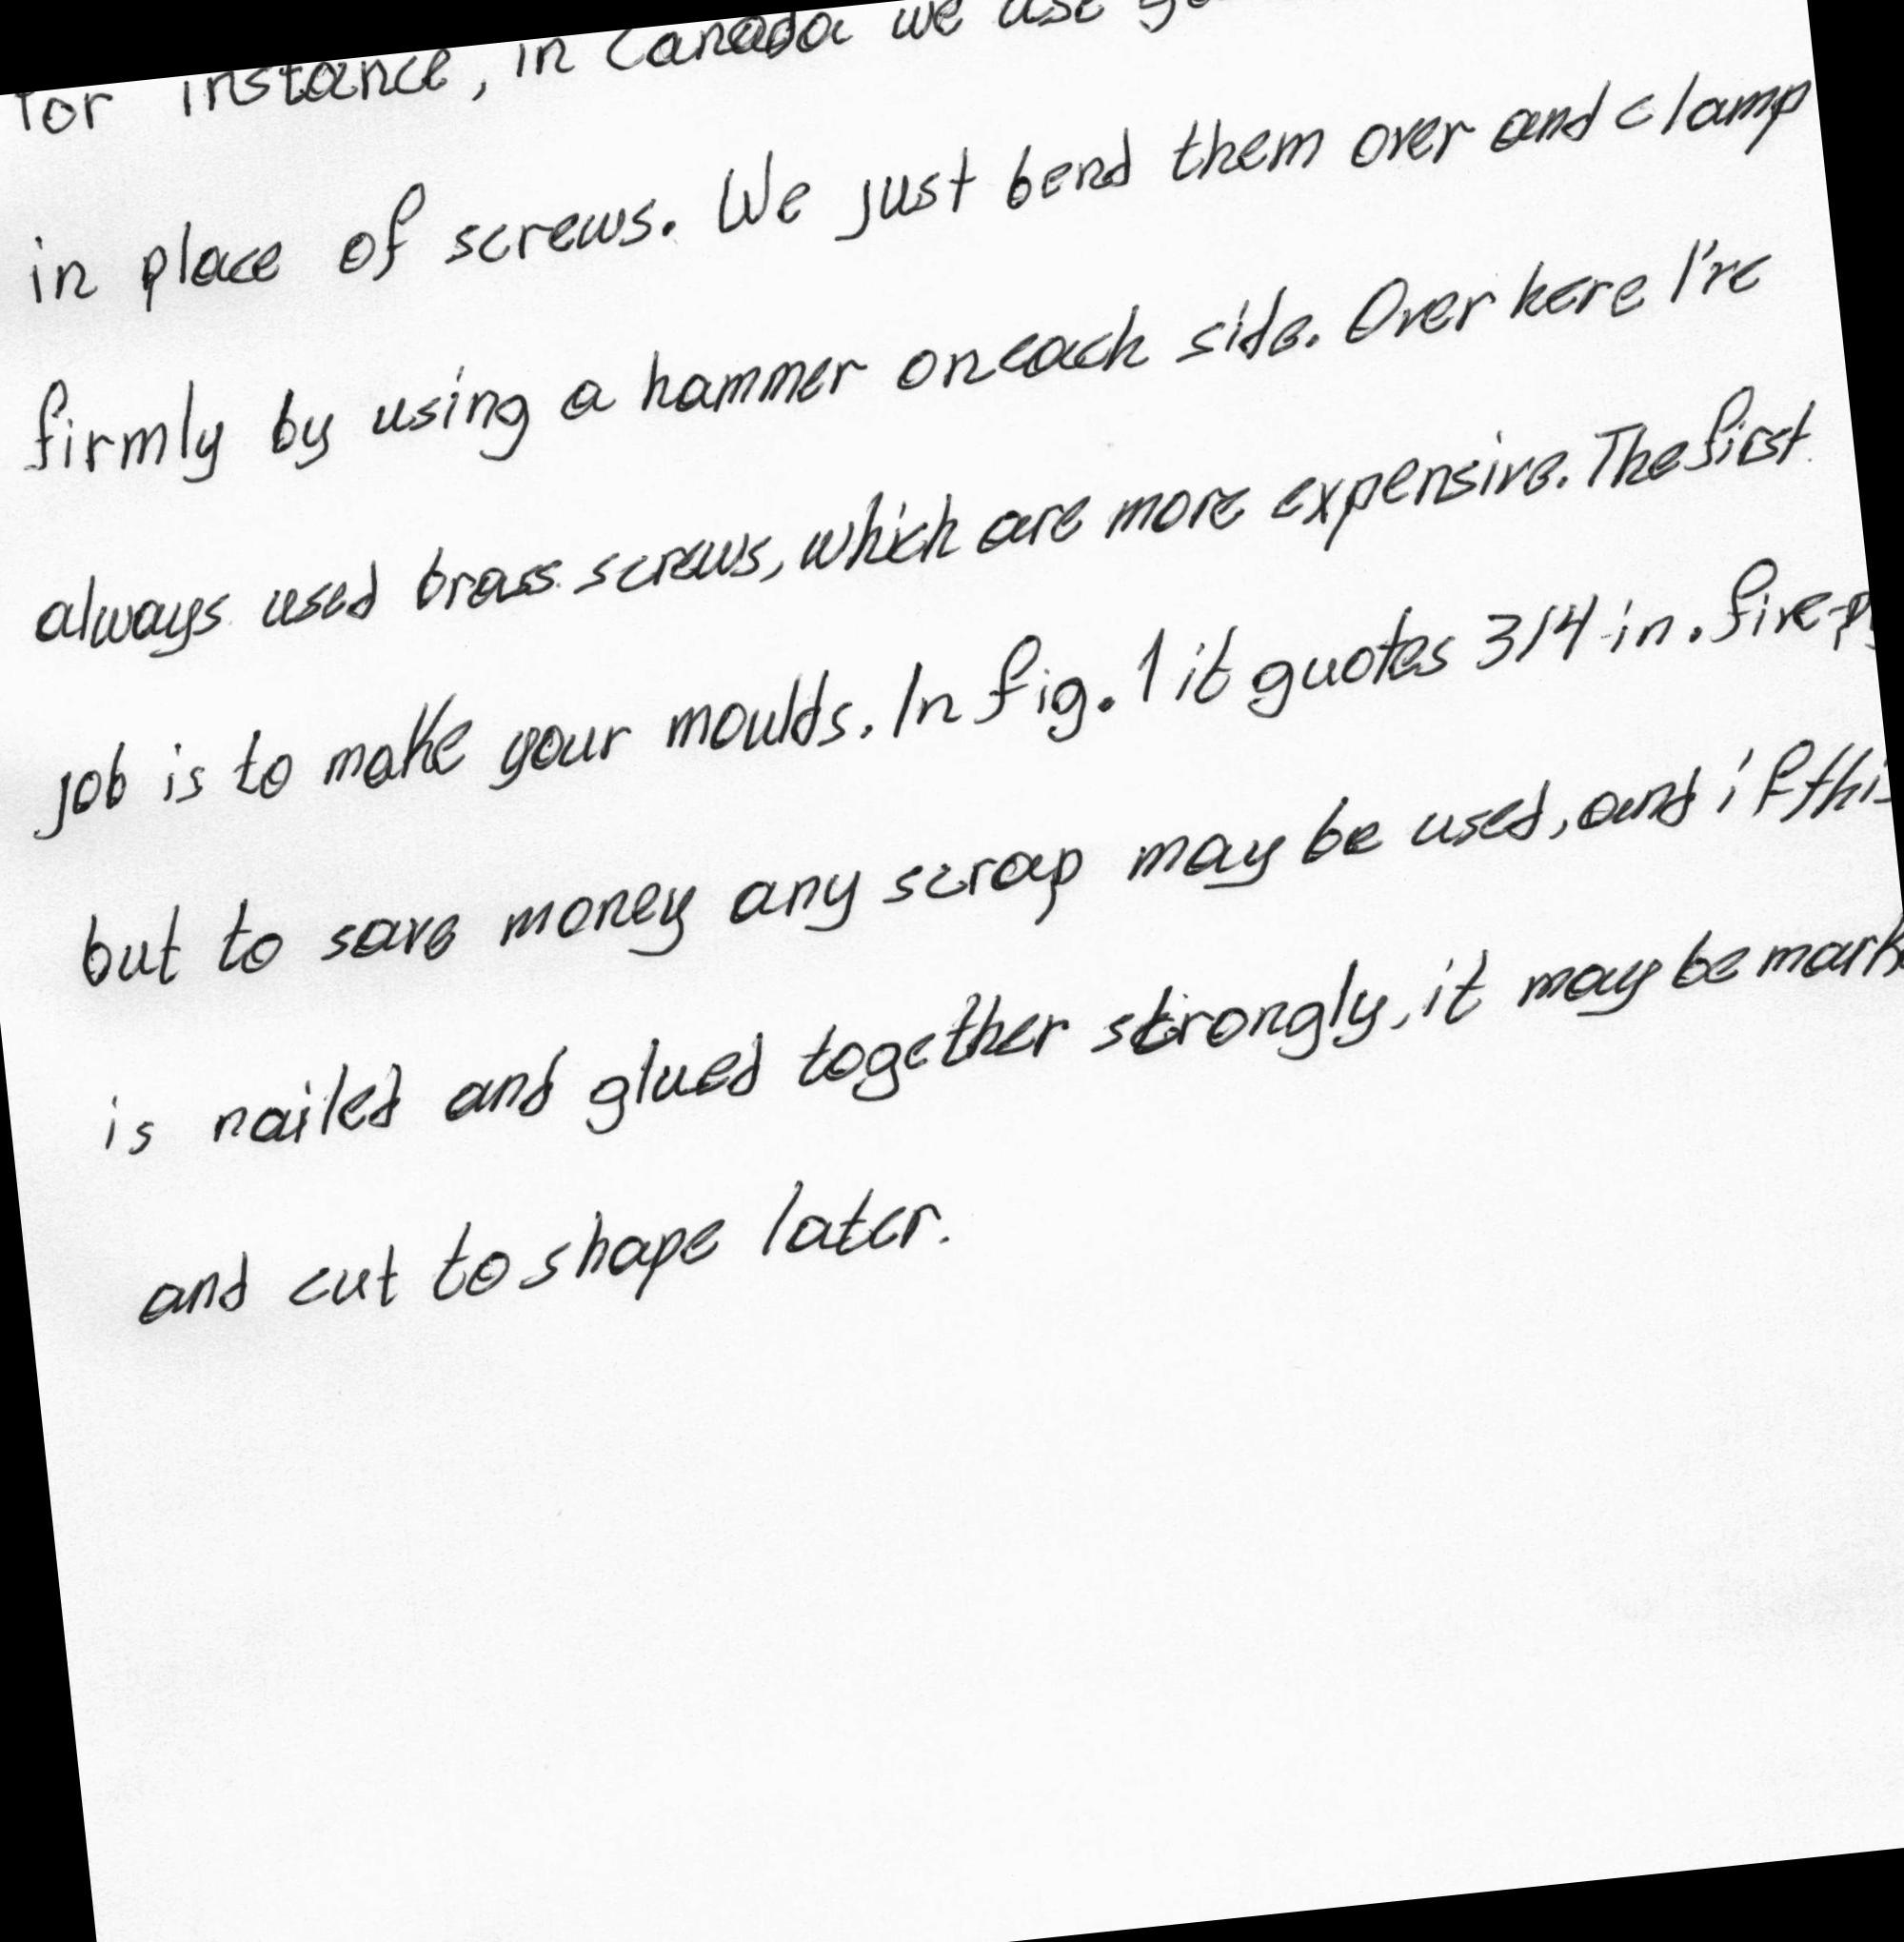 for instance, in Canada we use
in place of screws. We just bend them over and clamp
firmly by using a hammer on each side. Over here I've
always used brass screws, which are more expensive. The first
job is to make your moulds. In fig. 1 it quotes 3/4 in. five-p
but to save money any scrap may be used, and if this
is nailed and glued together strongly, it may be mark
and cut to shape later.